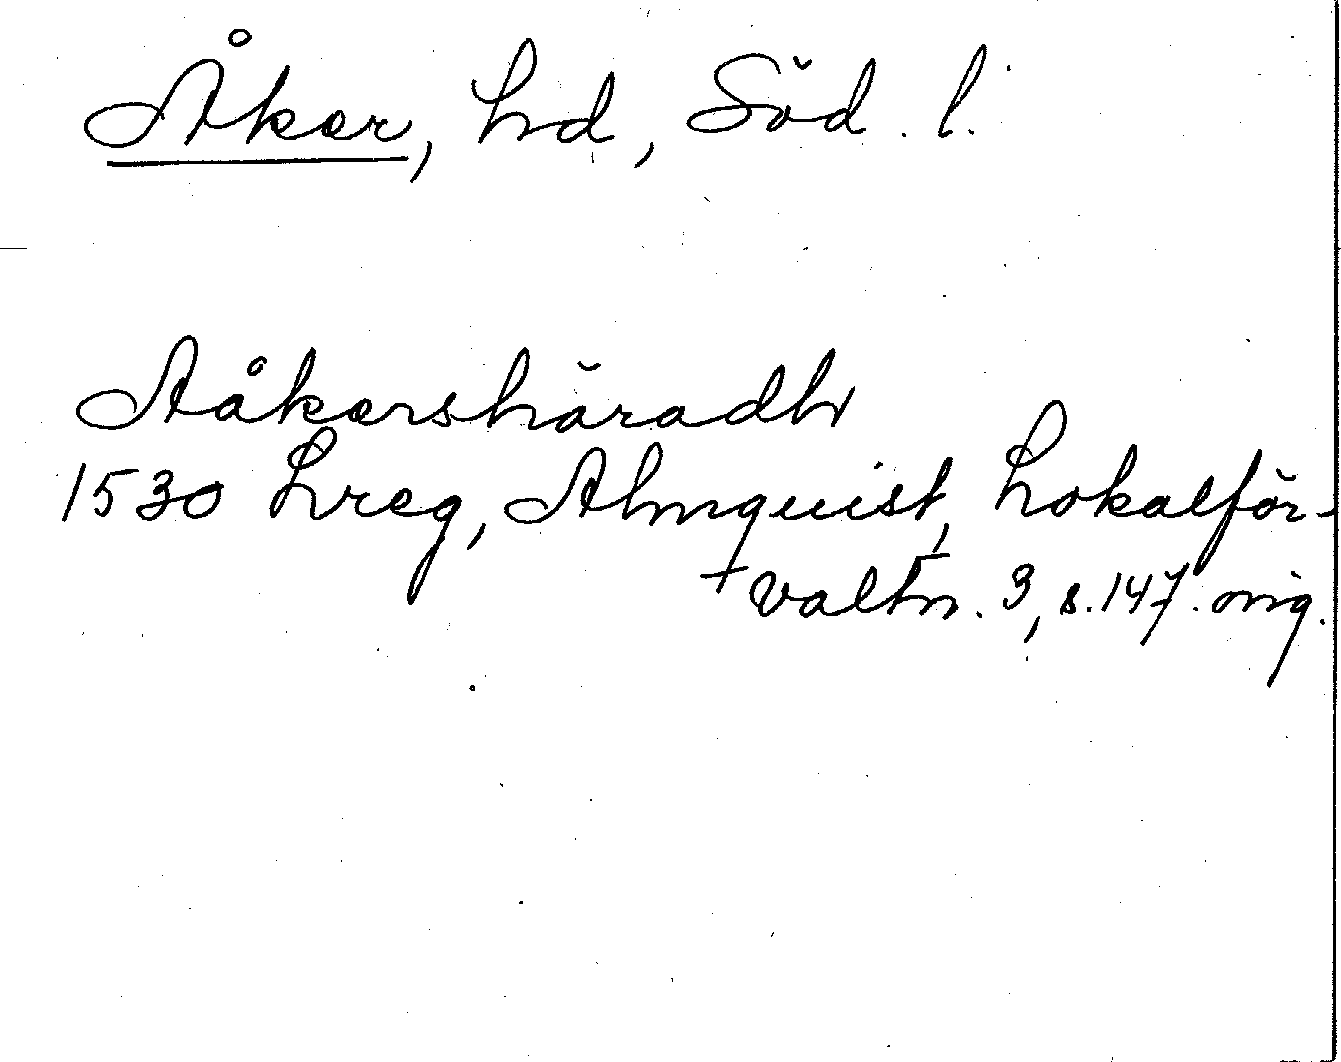 Åker, hd, Söd. l.
Aåkershäradh
1530 Lreg, Almquist, Lokalför-
valtn. 3, s. 147. orig.